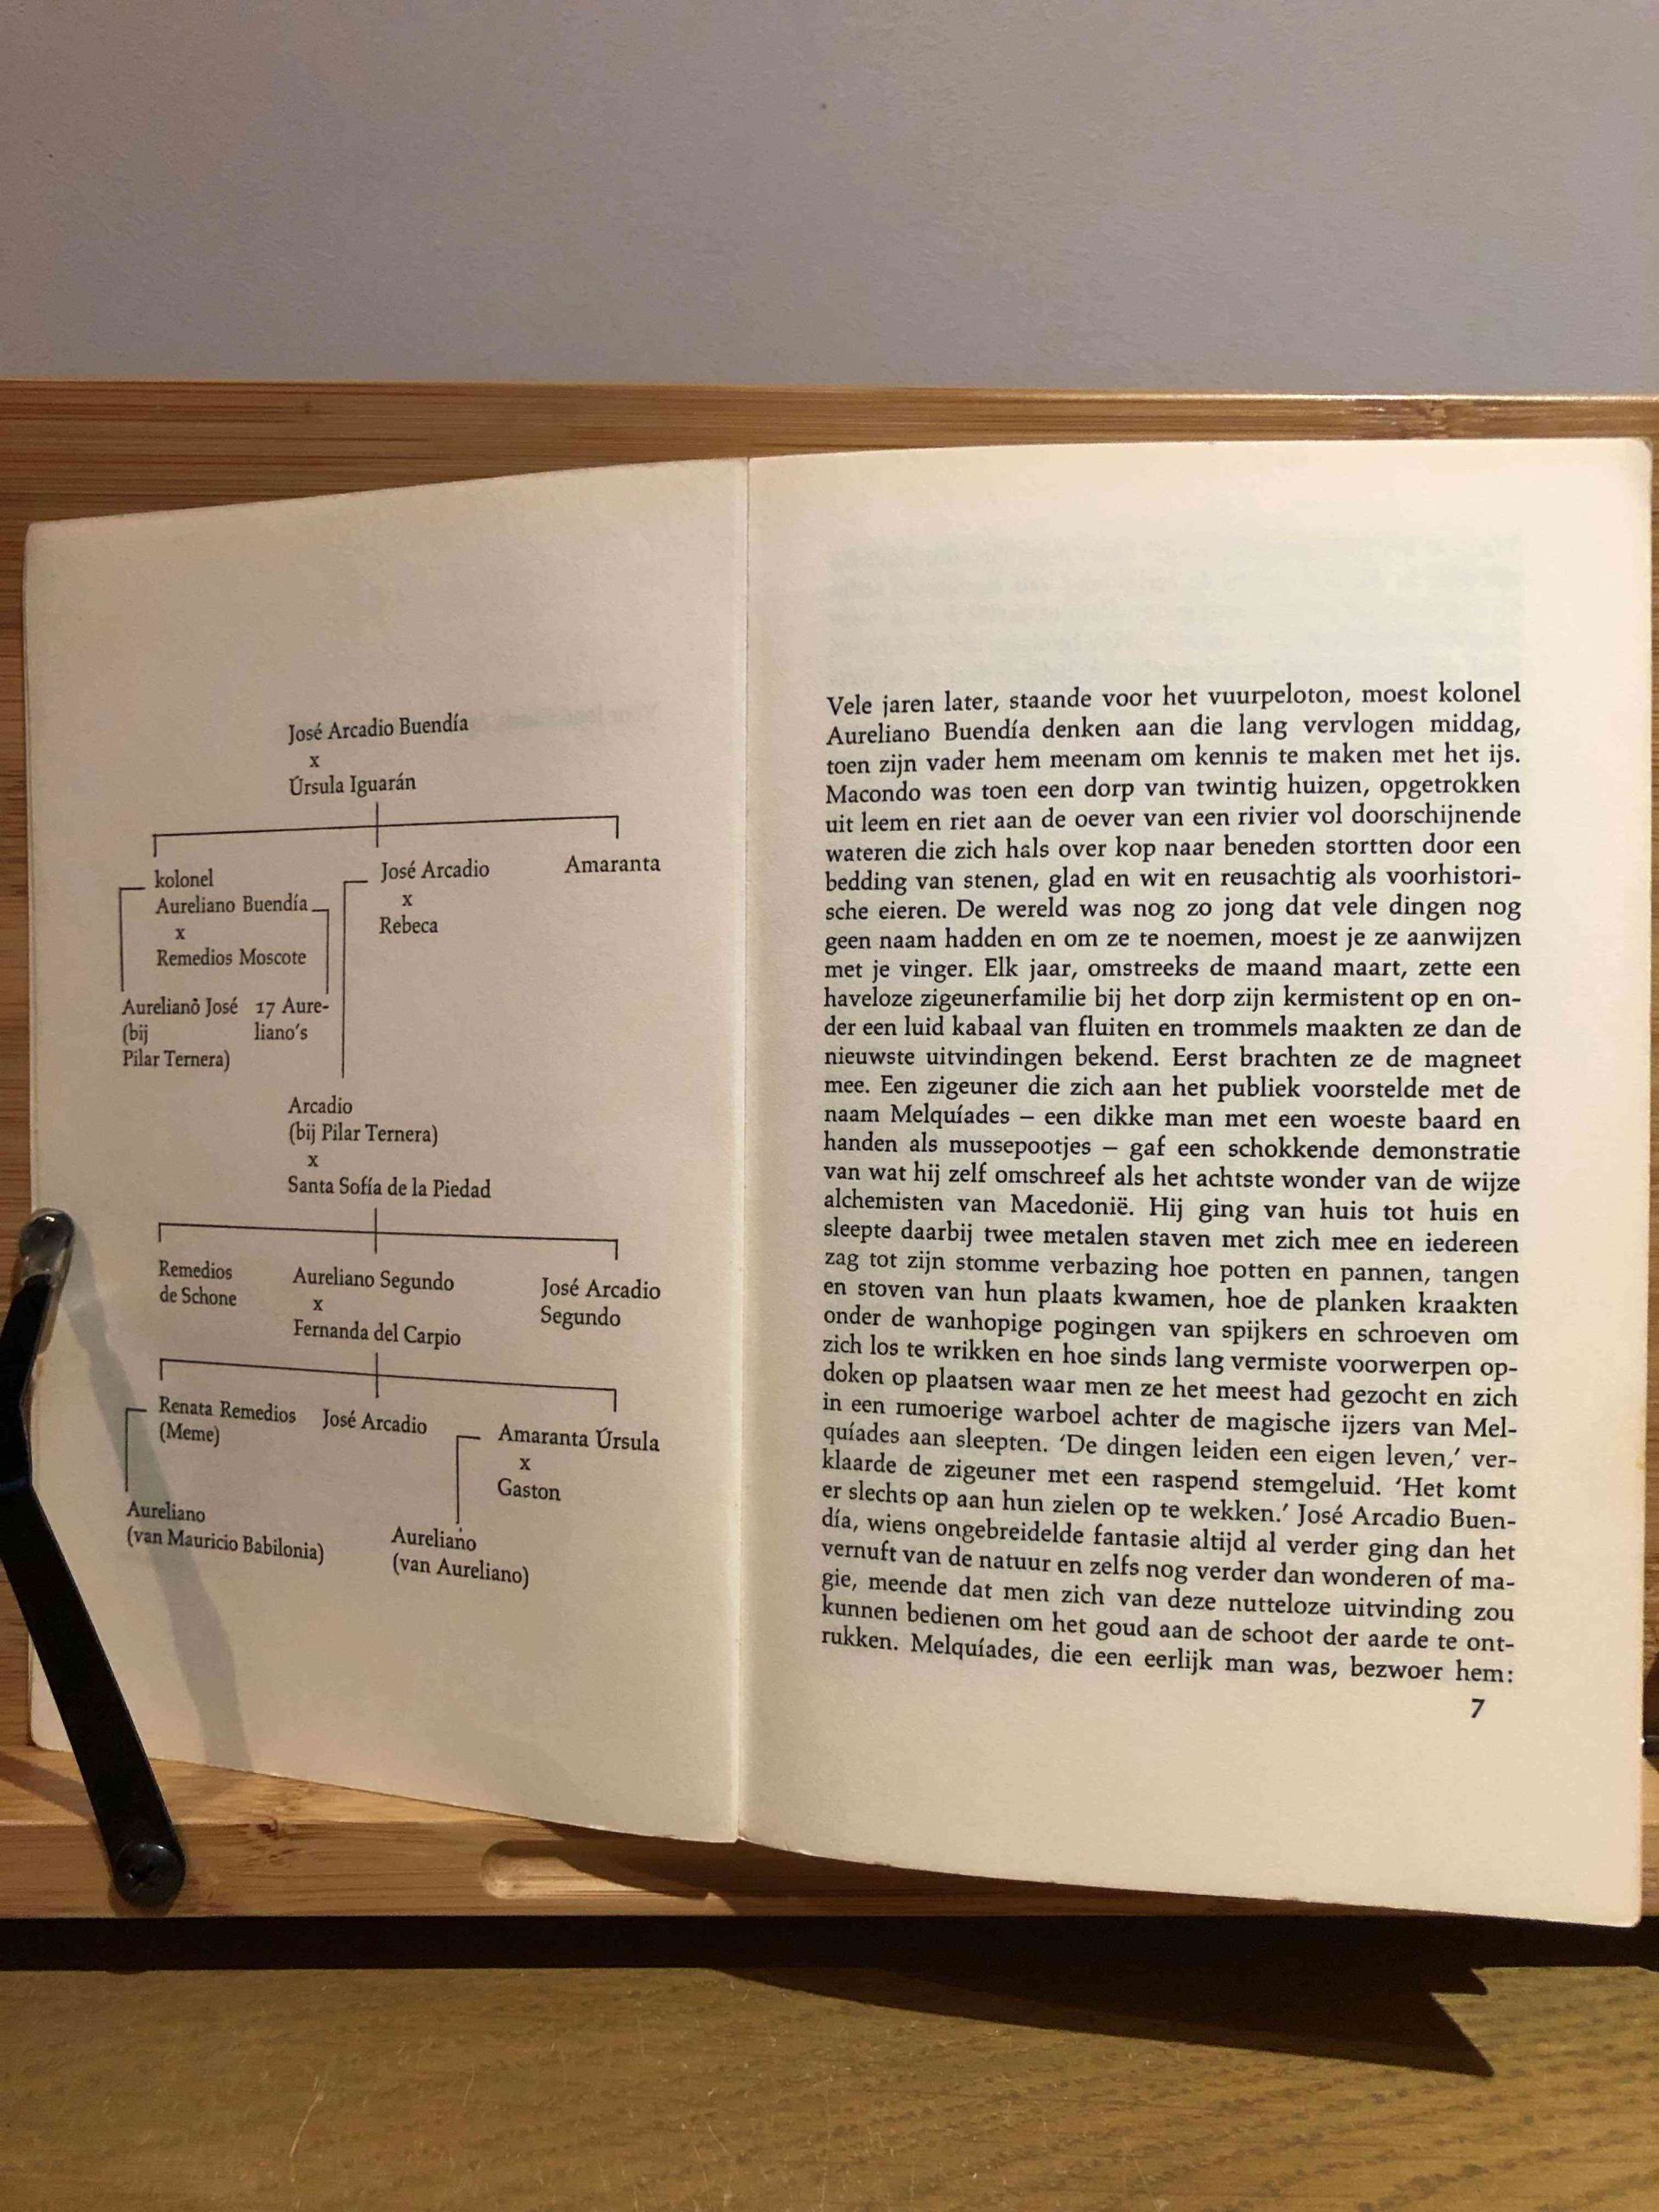 José Arcadio Buendía
x
Úrsula Iguarán
kolonel
Aureliano Buendía
x
Remedios Moscote
José Arcadio
x
Rebeca
Amaranta
Aureliano José
(bij
Pilar Ternera)
17 Aure-
liano's
Arcadio
(bij Pilar Ternera)
x
Santa Sofía de la Piedad
Remedios
de Schone
Aureliano Segundo
x
Fernanda del Carpio
José Arcadio
Segundo
Renata Remedios
(Meme)
José Arcadio
Amaranta Úrsula
x
Gaston
Aureliano
(van Mauricio Babilonia)
Aureliano
(van Aureliano)
Vele jaren later, staande voor het vuurpeloton, moest kolonel
Aureliano Buendía denken aan die lang vervlogen middag,
toen zijn vader hem meenam om kennis te maken met het ijs.
Macondo was toen een dorp van twintig huizen, opgetrokken
uit leem en riet aan de oever van een rivier vol doorschijnende
wateren die zich hals over kop naar beneden stortten door een
bedding van stenen, glad en wit en reusachtig als voorhistori-
sche eieren. De wereld was nog zo jong dat vele dingen nog
geen naam hadden en om ze te noemen, moest je ze aanwijzen
met je vinger. Elk jaar, omstreeks de maand maart, zette een
haveloze zigeunerfamilie bij het dorp zijn kermistent op en on-
der een luid kabaal van fluiten en trommels maakten ze dan de
nieuwste uitvindingen bekend. Eerst brachten ze de magneet
mee. Een zigeuner die zich aan het publiek voorstelde met de
naam Melquíades – een dikke man met een woeste baard en
handen als mussepootjes – gaf een schokkende demonstratie
van wat hij zelf omschreef als het achtste wonder van de wijze
alchemisten van Macedonië. Hij ging van huis tot huis en
sleepte daarbij twee metalen staven met zich mee en iedereen
zag tot zijn stomme verbazing hoe potten en pannen, tangen
en stoven van hun plaats kwamen, hoe de planken kraakten
onder de wanhopige pogingen van spijkers en schroeven om
zich los te wrikken en hoe sinds lang vermiste voorwerpen op-
doken op plaatsen waar men ze het meest had gezocht en zich
in een rumoerige warboel achter de magische ijzers van Mel-
quíades aan sleepten. 'De dingen leiden een eigen leven,' ver-
klaarde de zigeuner met een raspend stemgeluid. 'Het komt
er slechts op aan hun zielen op te wekken.' José Arcadio Buen-
día, wiens ongebreidelde fantasie altijd al verder ging dan het
vernuft van de natuur en zelfs nog verder dan wonderen of ma-
gie, meende dat men zich van deze nutteloze uitvinding zou
kunnen bedienen om het goud aan de schoot der aarde te ont-
rukken. Melquíades, die een eerlijk man was, bezwoer hem:
7